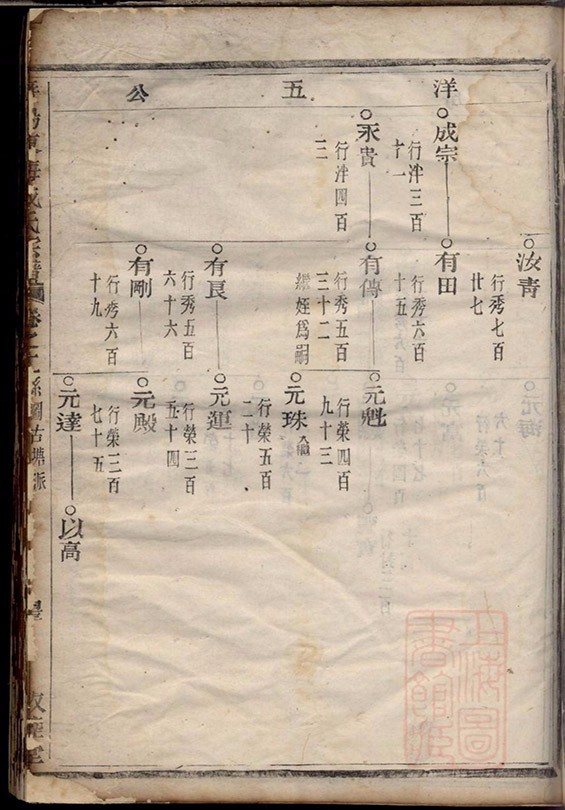 洋 五 公
成宗
行泮三百
十一
永貴
行泮四百
三
汝青
行秀七百
廿七
有田
行秀六百
十五
有傳
行秀五百
三十二
繼姪爲嗣
有良
行秀五百
六十六
有剛
行秀六百
十九
元魁
行榮四百
九十三
元珠
行榮五百
二十
元運
行榮三百
五十四
元殿
行榮三百
七十五
元達
以高
古塘派